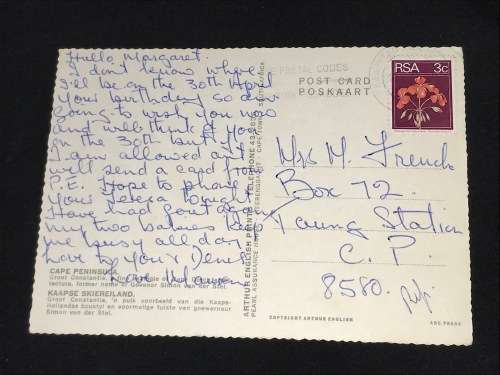 Hello Margaret.
I don't know where
I'll be on the 30th April
your birthday so am
going to wish you now
and will think of you
on the 30th but if
I am allowed out
will send a card from
P.E. Hope to phone
your
Have had gout so
my two babies keep
me busy all day
Love to you
Love
CAPE PENINSULA.
Groot Constantia,
tecture, former home of Govenor Simon van der Stel.
KAAPSE SKIEREILAND.
Groot Constantia, 'n puik voorbeeld van die Kaaps-
Hollandse boustyl en voormalige tuiste van goewerneur
Simon van der Stel.
ARTHUR ENGLISH PRINTS TELEPHONE
PEARL ASSURANCE HOUSE HEERENGRACHT CAPE TOWN SOUTH AFRICA
POSTAL CODES
POST CARD
POSKAART
RSA 3c
Mrs M. French
Box 72
Taung Station
C.P.
8580.
COPYRIGHT ARTHUR ENGLISH
ABC PRESS